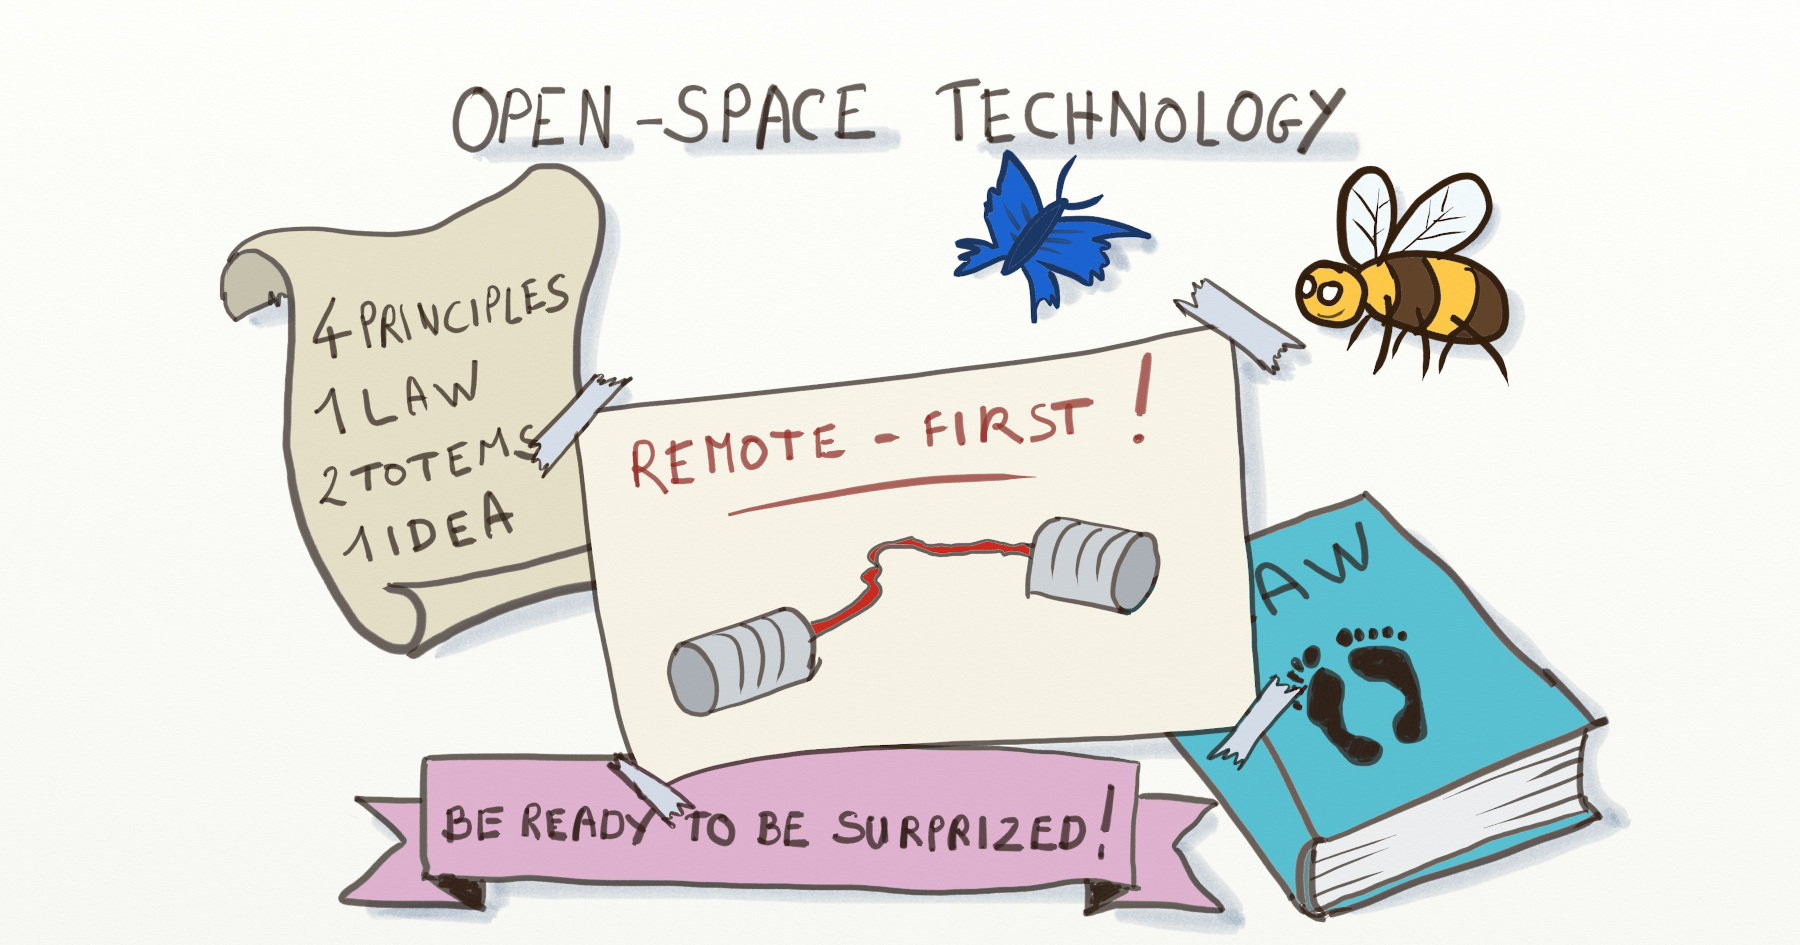 OPEN-SPACE TECHNOLOGY
4 PRINCIPLES
1 LAW
2 TOTEMS
1 IDEA
REMOTE-FIRST!
AW
BE READY TO BE SURPRIZED!